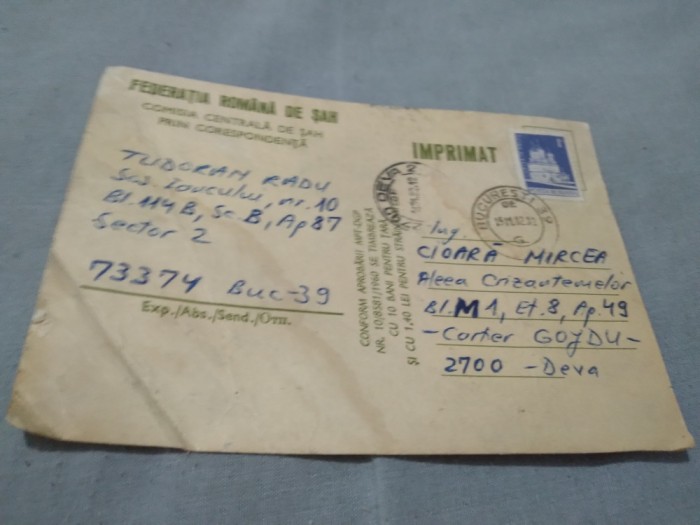 FEDERAȚIA ROMÂNĂ DE ȘAH
COMISIA CENTRALĂ DE ȘAH
PRIN CORESPONDENȚĂ
TUDORAN RADU
Sos. Iancului, nr. 10
Bl. 114 B, Sc. B, Ap 87
Sector 2
73374 Buc-39
Exp./Abs./Send./Отп.
CONFORM APROBĂRII MPT-DGP
NR. 10/8581/1960 SE TIMBREAZĂ
CU 10 BANI PENTRU ȚARĂ
ȘI CU 1,40 LEI PENTRU STRĂINĂTATE
IMPRIMAT
DEVA
BUCUREȘTI 39
Ing.
CIOARĂ MIRCEA
Aleea Crizantemelor
Bl. M1, Et. 8, Ap. 49
-Cartier GOJDU-
2700 -Deva